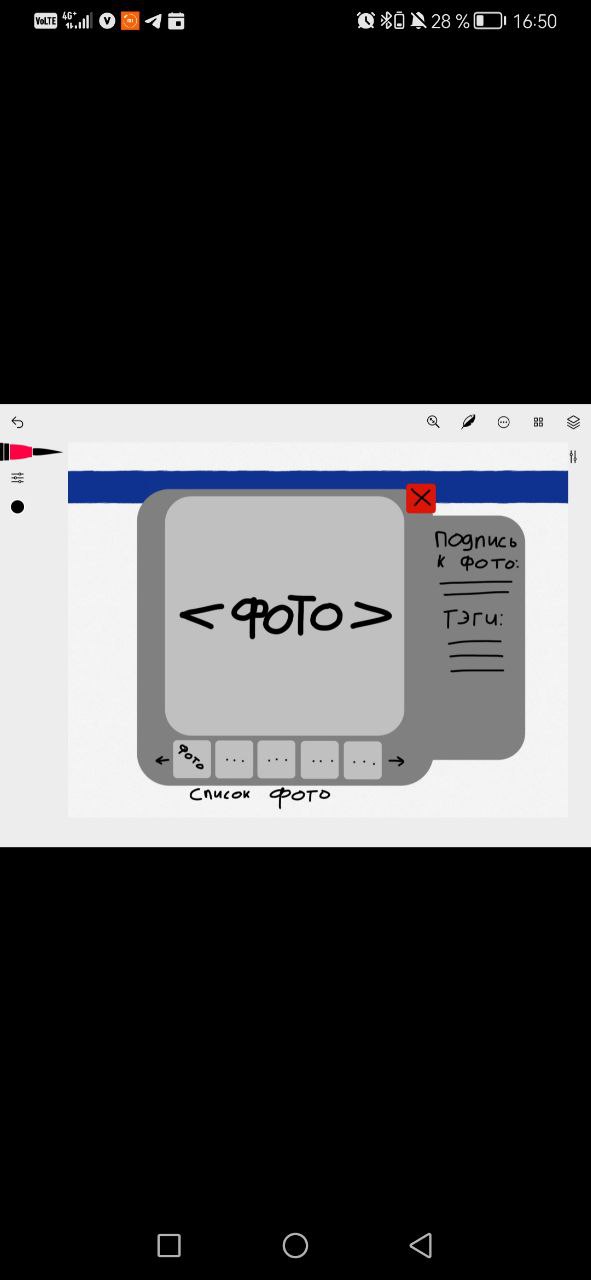 VoLTE 4G+ 28 % 16:50
< ФОТО >
Подпись
к фото:
Тэги:
← ФОТО ... ... ... ... →
Список фото